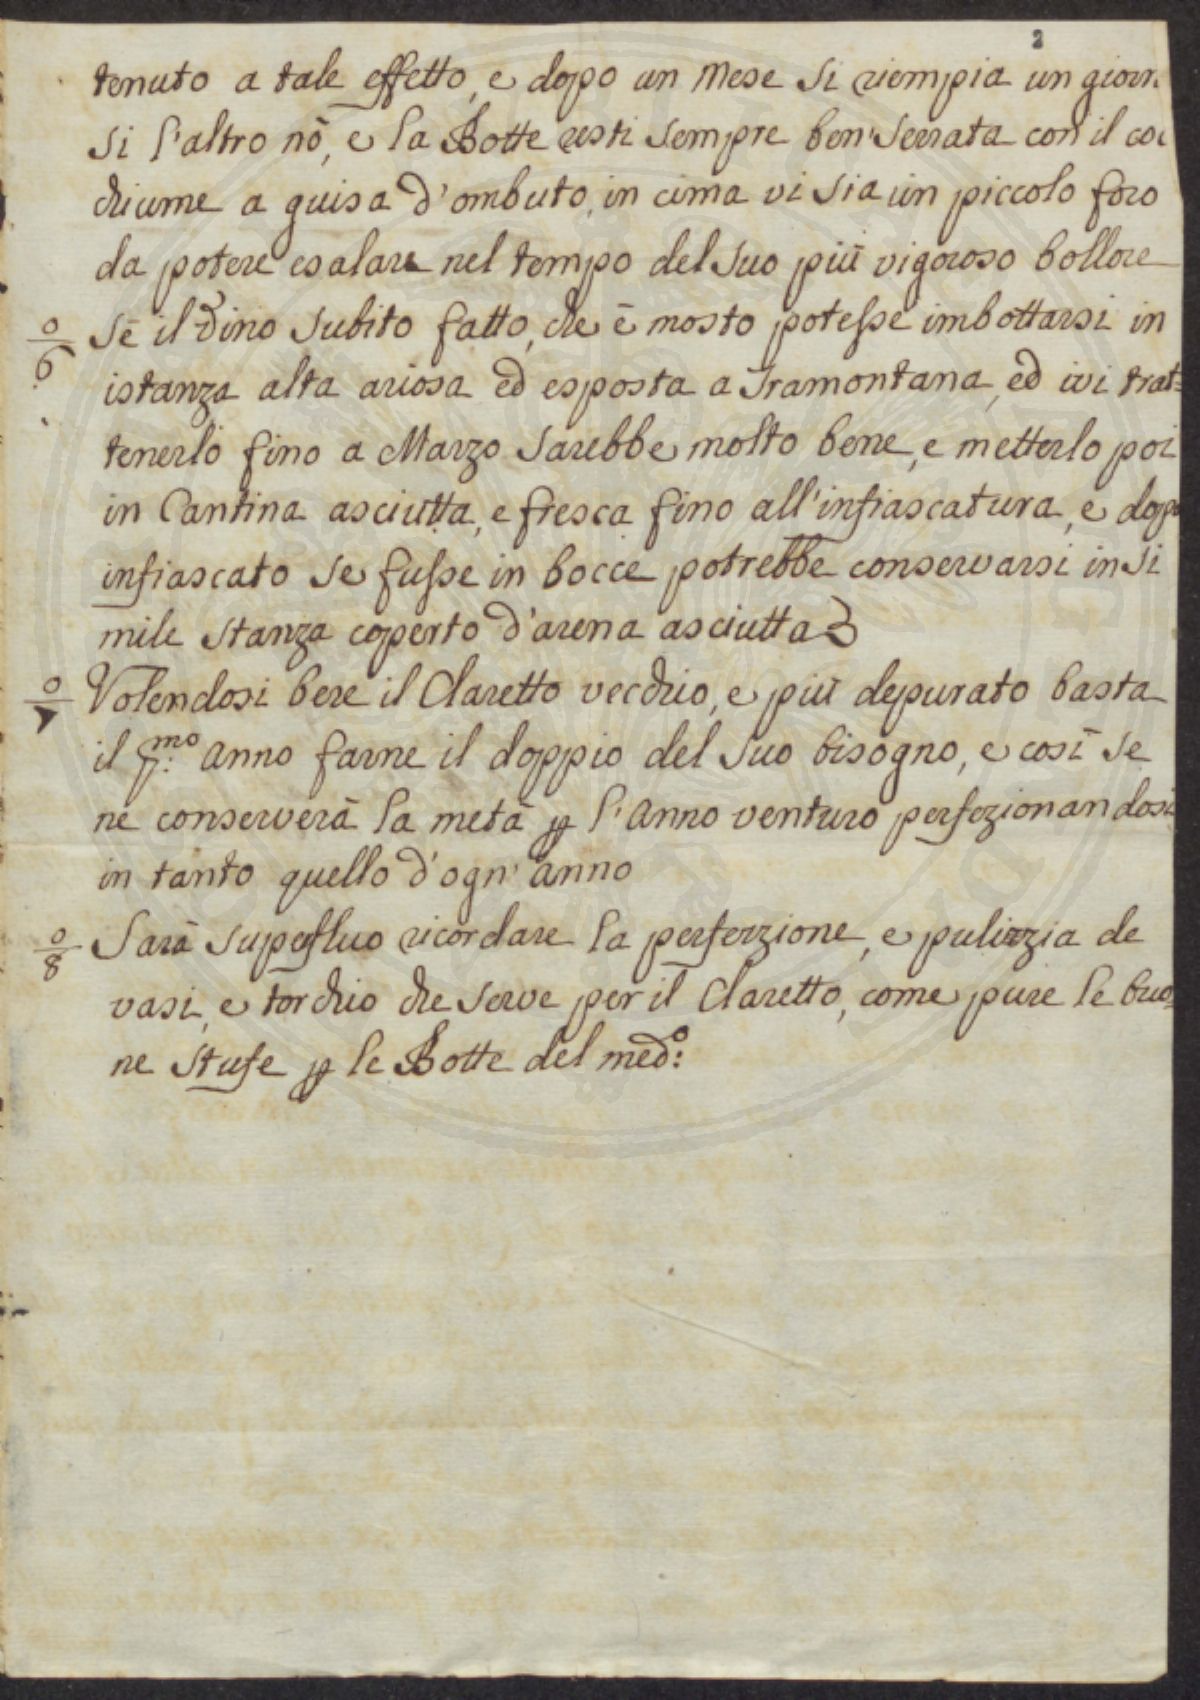 2
tenuto a tale effetto, e dopo un Mese si riempia un giorn
si l'altro nò, e la Botte resti sempre ben'serrata con il coc
chiume a guisa d'ombuto, in cima vi sia un piccolo foro
da potere esalare nel tempo del suo più vigoroso bollore
o/6 Sè il Vino subito fatto, che è mosto potesse imbottarsi in
istanza alta ariosa ed esposta a Tramontana, ed ivi trat=
tenerlo fino a Marzo sarebbe molto bene, e metterlo poi
in Cantina asciutta, e fresca fino all'infiascatura, e dopo
infiascato se fusse in bocce potrebbe conservarsi in si
mile stanza coperto d'arena asciutta
o/7 Volendosi bere il Claretto vecchio, e più depurato basta
il p:mo anno farne il doppio del suo bisogno, e così se
ne conserverà la metà p l'Anno venturo perfezionandosi
in tanto quello d'ogn'anno
o/8 Sarà superfluo ricordare la perferzione, e pulizzia de
vasi, e torchio che serve per il Claretto, come pure le buo=
ne stufe p le Botte del med:o